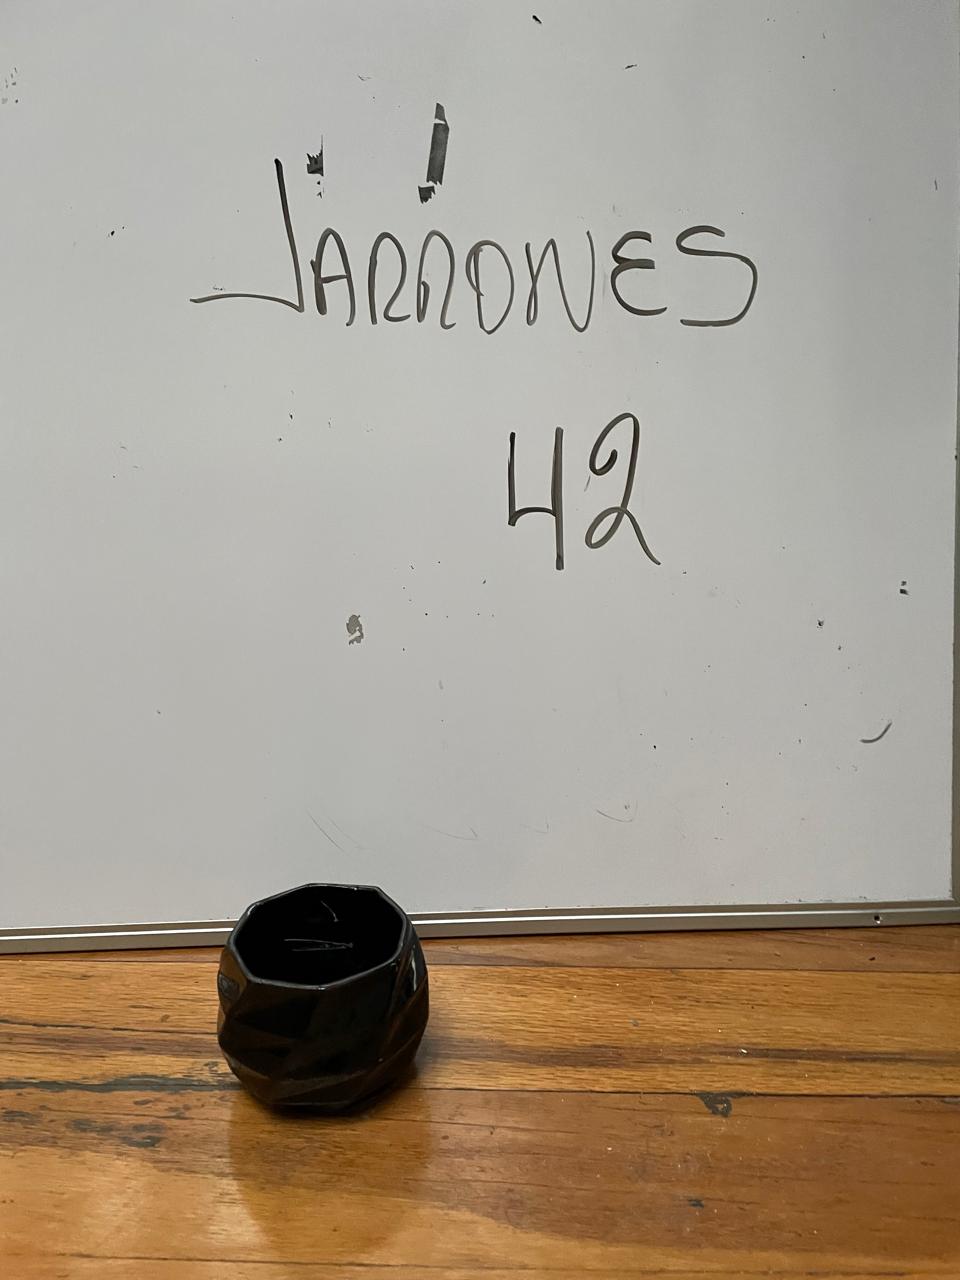 JARRONES
42